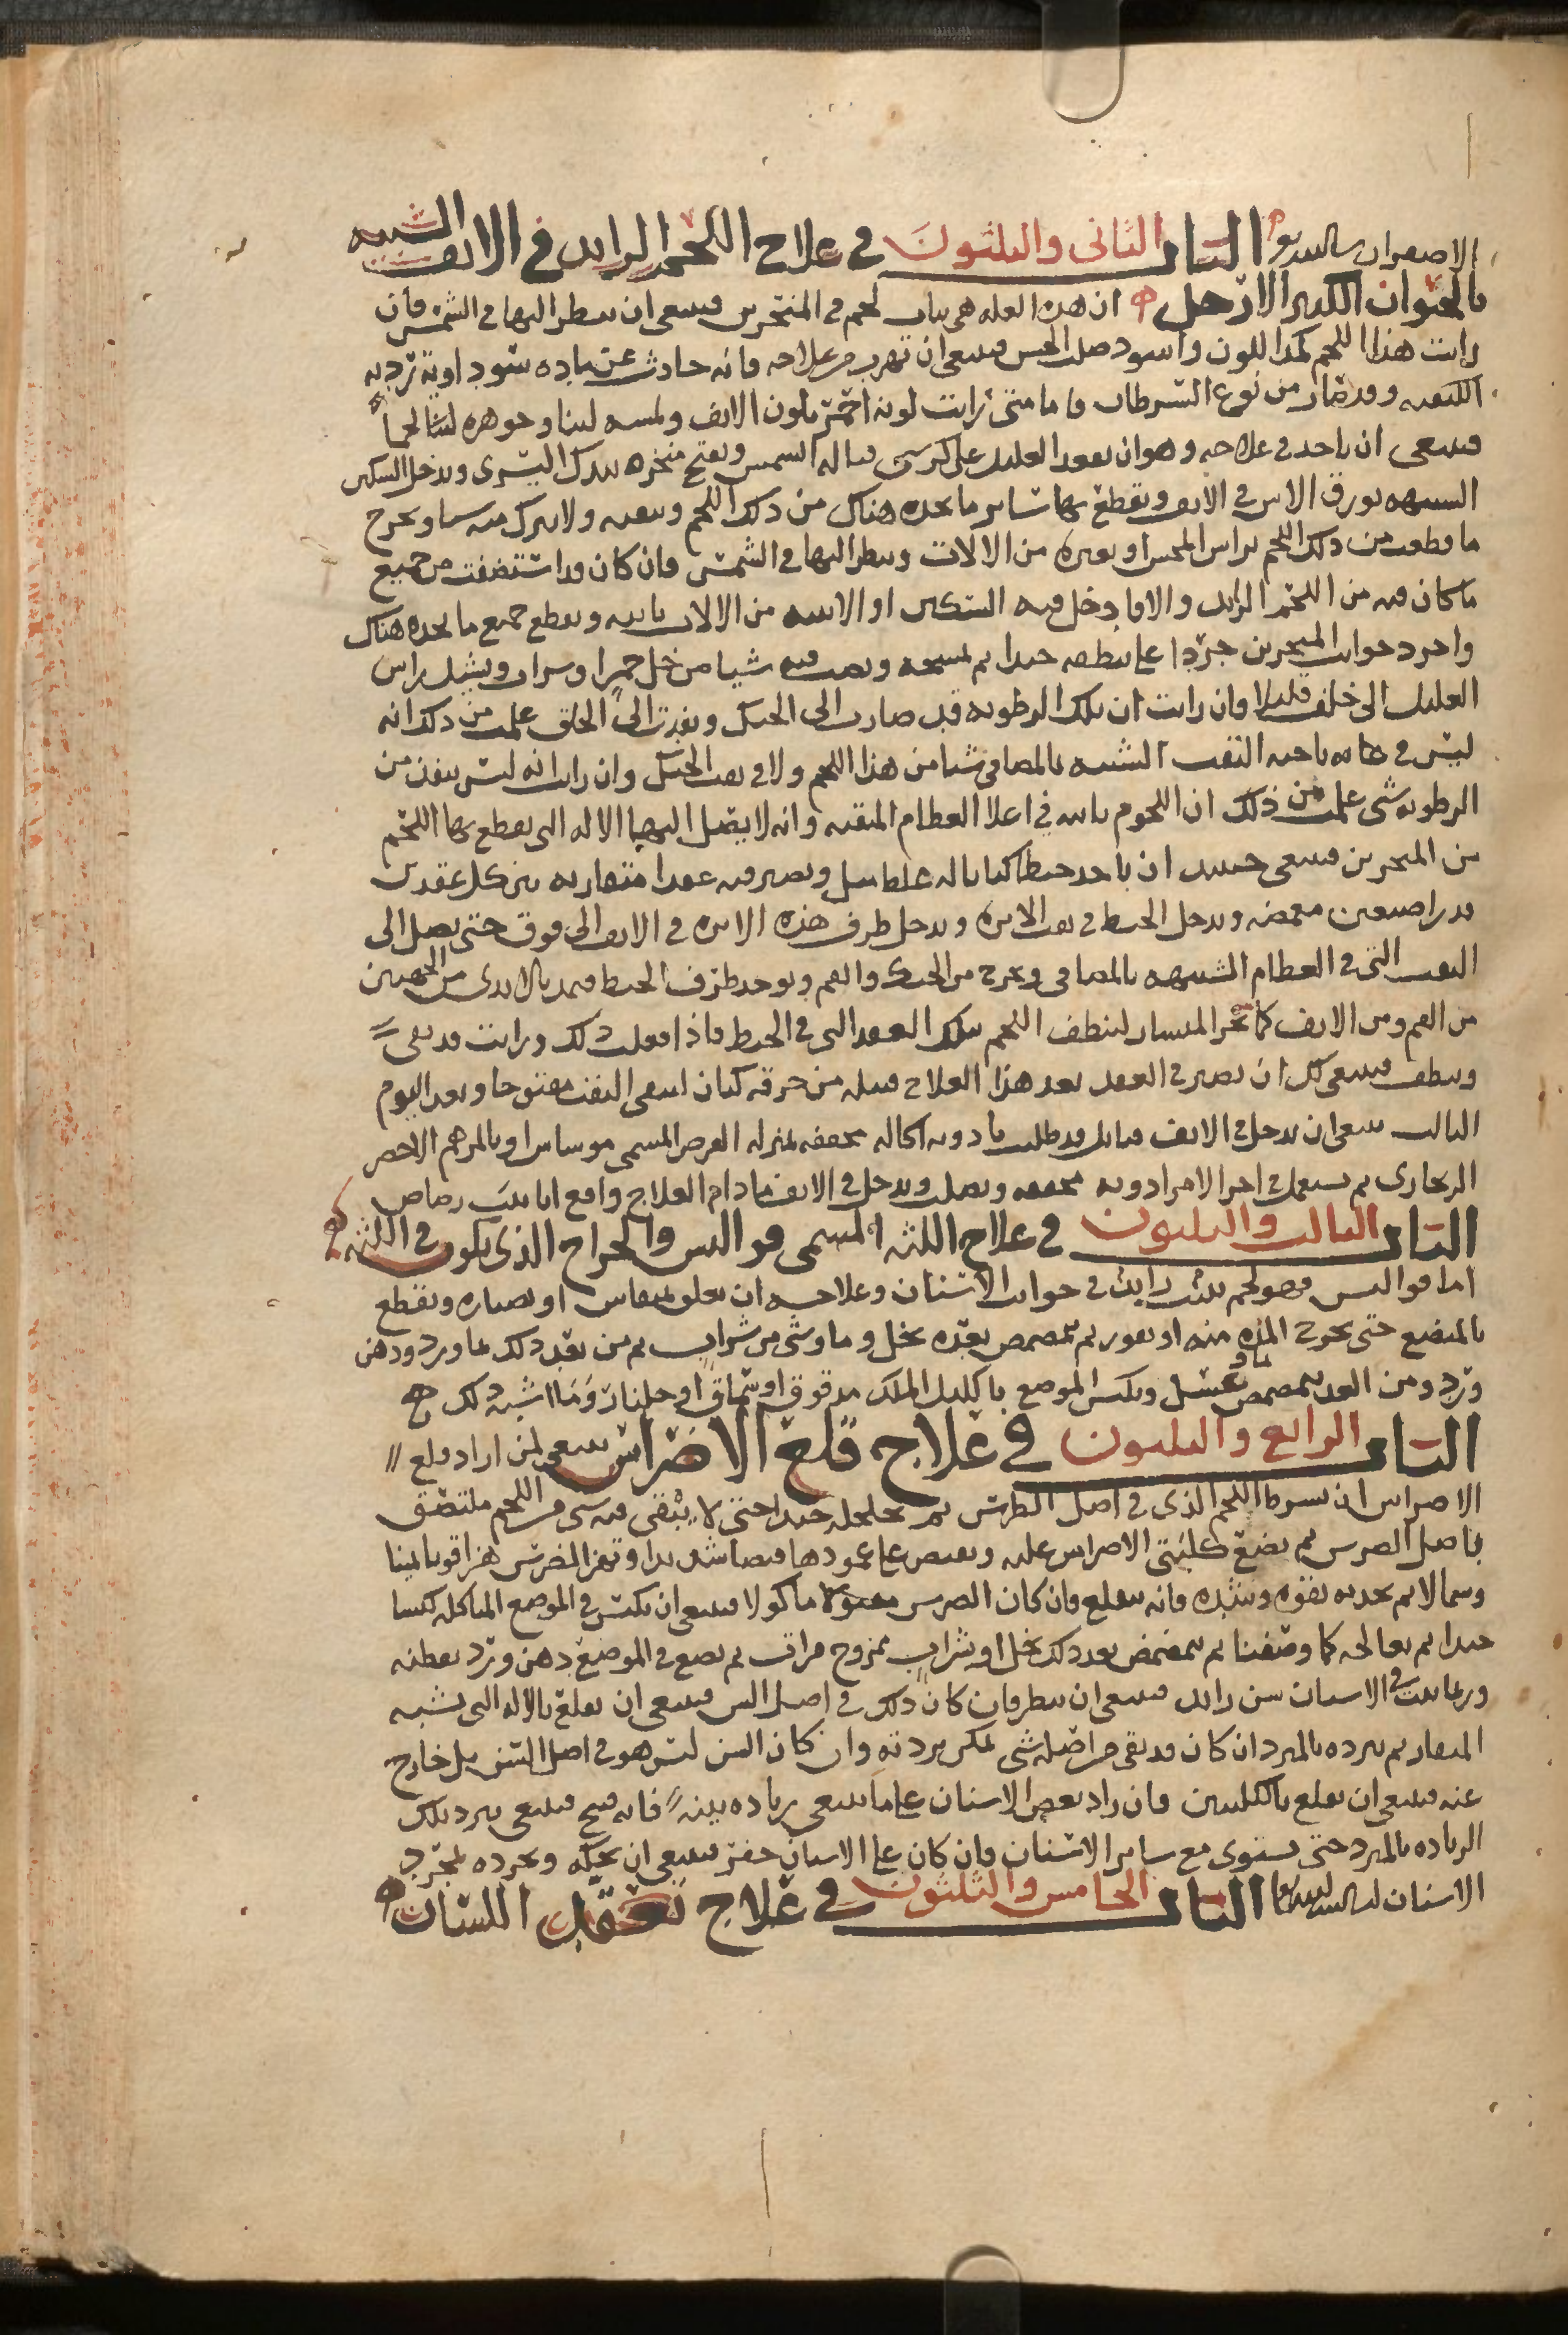 الاصفران بالسديد الباب الثانى والثلثون في علاج اللحم الزايد في الانف الشبيه
بالحيوان الكثير الارجل ان هذه العله هى نبات لحم في المنخرين فينبغى ان ينظر اليها في الشمس فان
رايت هذا اللحم كمد اللون واسود صلب المجس فينبغى ان تهرب من علاجه فانه حادث عن ماده سوداوية رديه
الكيفيه وقد صار من نوع السرطان فاما متى رايت لونه احمر بلون الانف ولمسه لينا وجوهره لينا لحميا
فينبغى ان ياخذ في علاجه وهو ان يقعد العليل على كرسى قباله الشمس ويفتح منخره بيدك اليسرى ويدخل السكين
الشبيهه بورق الاس في الانف ويقطع بها ساير ما تجده هناك من ذلك اللحم وينقيه ولا يترك منه شيا ويخرج
ما قطعت من ذلك اللحم براس المجس او بغيره من الالات وينظر اليها في الشمس وان كان قد استنضفت من جميع
ما كان فيه من اللحم الزايد والا فادخل فيه السكين او الانبيه من الالات ثانيه ويقطع جميع ما تجده هناك
واجرد جوانب المنخرين جردا على ينظفه جيدا ثم تمسحه ويصب فيه شيا من خل خمر او شراب ويشيل راس
العليل الى خلف قليلا فان رايت ان تلك الرطوبه قد صارت الى الحنك ونفدت الى الحلق علمت من ذلك انه
ليس في هاته ناحيه الثقب الشبيه بالمصافى شيا من هذا اللحم ولا في ثقب الحنك وان رايت انه ليس ينفذ من
الرطوبه شى علمت من ذلك ان اللحوم نابته في اعلا العظام المثقبه وانه لا يصل اليها الاله التى يقطع بها اللحم
من المنخرين فينبغى حينيد ان ياخذ خيطا كتانا له غلظ يسير وتصير فيه عقدا متقاربه بين كل عقدتين
قدر اصبعين مضمومه ويدخل الخيط في ثقب الابره ويدخل طرف هذه الابره في الانف الى فوق حتى يصل الى
الثقب التى في العظام الشبيهه بالمصافى ويخرج من الحنك والفم ويوخذ طرفى الخيط فيمد بالايدى من الجهتين
من الفم ومن الانف كما يجر المنشار لينظف اللحم بتلك العقد التى في الخيط فاذا فعلت ذلك ورايت قد نقى
وينظف فينبغى لك ان تصير في العقد بعد هذا العلاج فتيله من خرقه كتان ليبقى الثقب مفتوحا وبعد اليوم
الثالث ينبغى ان يدخل في الانف فتايل قد طليت بادويه اكاله مجففه بمنزله القرص المسمى موساس او بالمرهم الاخضر
الزنجارى ثم يستعمل في اخر الامر ادويه مجففه ويصلب ويدخل في الانف ما دام العلاج واقع انابيب رصاص
الباب الثالث والثلثون في علاج اللثه المسمى فوالس والخراج الذى يكون في اللثه
اما فوالس فهو لحم ينبت زايدا في جوانب الاسنان وعلاجه ان يعلق بمنقاش او بصناره ويقطع
بالمبضع حتى يخرج المده منه او يغور ثم يتمضمض بعده بخل وما وشى من شراب ثم من بعد ذلك بما ورد ودهن
ورد ومن الغد يتمضمض بما وعسل ويكبس الموضع باكليل الملك مدقوق او سماق او جلنار وما اشبه ذلك
الباب الرابع والثلثون في علاج قلع الاضراس ينبغى لمن اراد قلع
الاضراس ان يشرط اللحم الذى في اصل الضرس ثم يخلخله جيدا حتى لا يبقى فيه شى من اللحم ملتصق
باصل الضرس ثم يضع كلبتى الاضراس عليه ويقبض على عمودها قبضا شديدا ويهز الضرس هزا قويا يمينا
وشمالا ثم يجذبه بقوه وشده فانه ينقلع فان كان الضرس مثقوبا ماكولا فينبغى ان تكبس في الموضع المتاكل كبسا
جيدا ثم يعالجه كما وصفنا ثم يتمضمض بعد ذلك بخل او شراب ممزوج مرات ثم يضع في الموضع دهن ورد بقطنه
وربما نبت في الاسنان سن زايد فينبغى ان ينظر فان كان ذلك في اصل السن فينبغى ان يقلع بالاله التى تشبه
المنقار ثم يبرده بالمبرد ان كان قد بقى من اصله شى يمكن بردته وان كان السن ليس هو في اصل السن بل خارج
عنه فينبغى ان يقلع بالكلبتين وان زاد بعض الاسنان على ما ينبغى زياده بينه فانه قبيح فينبغى يبرد تلك
الزياده بالمبرد حتى يستوى مع ساير الاسنان وان كان على الاسنان حفر فينبغى ان يحكه ويجرده بمجرد
الاسنان الباب الخامس والثلثون في علاج تعقل اللسان